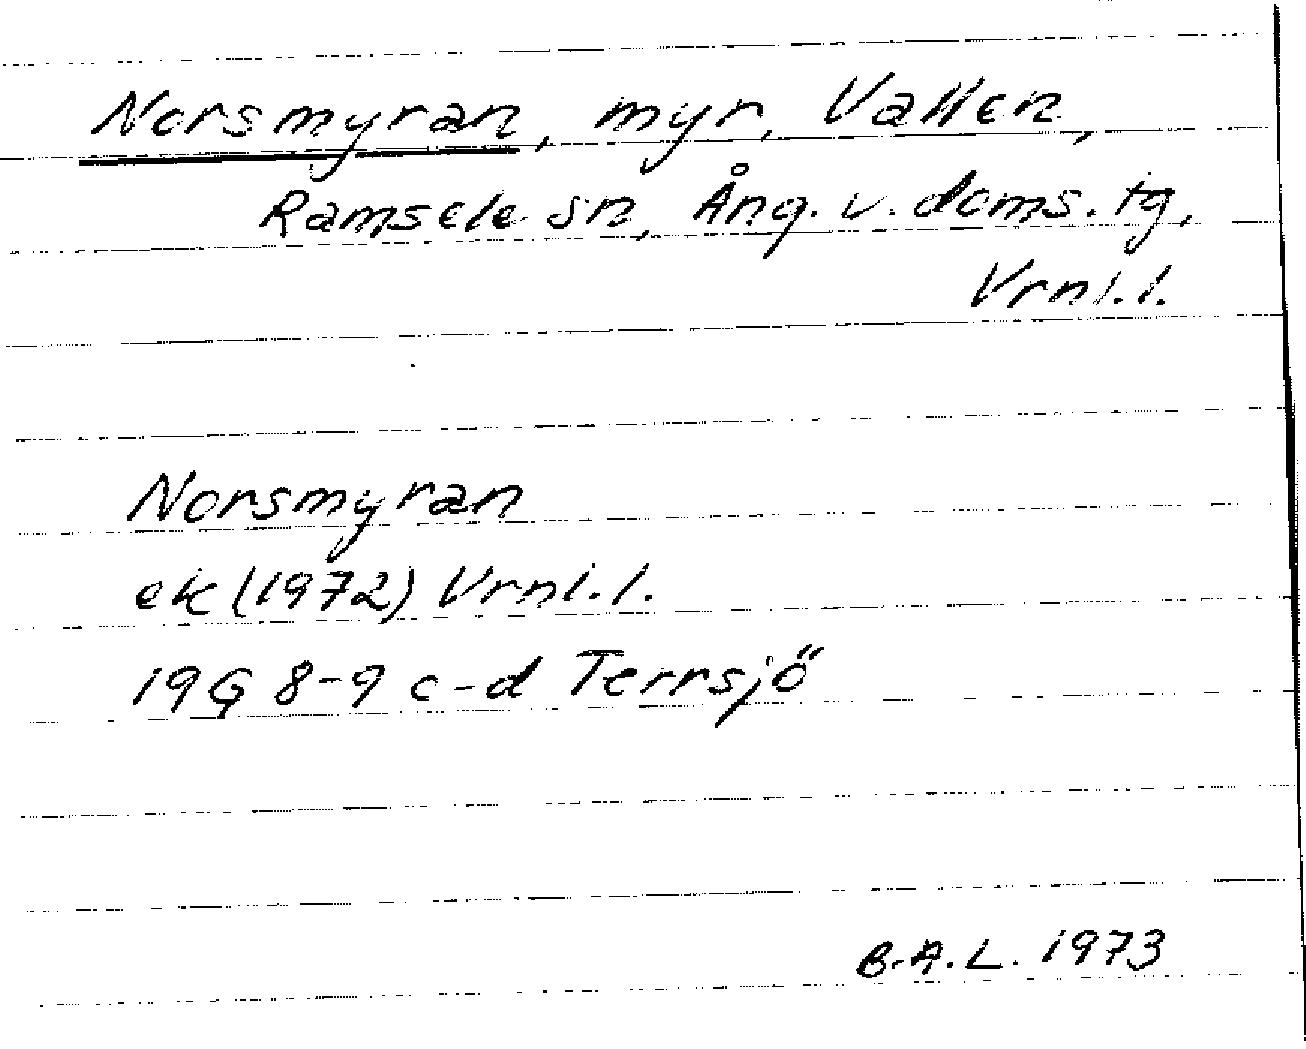 Norsmyran, myr, Vallen,
Ramsele sn, Ång. v. doms. tg,
Vrnl. l.
Norsmyran
ek (1972) Vrnl. l.
19G 8-9 c-d Terrsjö
B.A.L. 1973